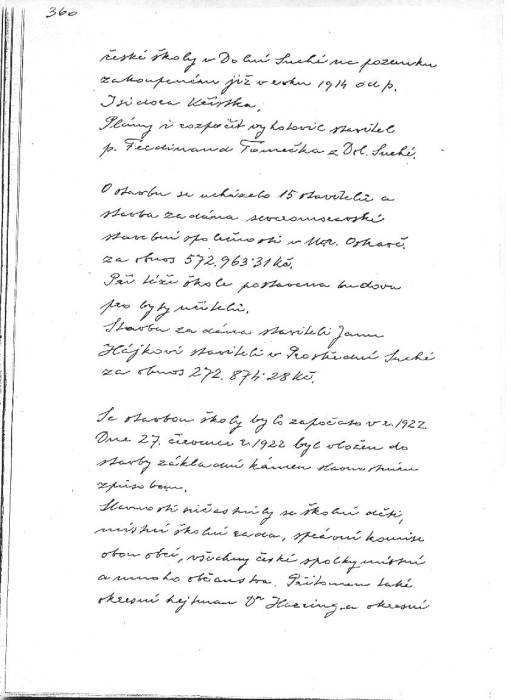 360
české školy v Dolní Suché na pozemku
zakoupeném již v roku 1914 od p.
Isidora Křístka.
Plány i rozpočet vyhotovil stavitel
p. Ferdinand Tomečka z Dol. Suché.
O stavbu se ucházelo 15 stavitelů a
stavba zadána severomoravské
stavební společnosti v Mor. Ostravě.
za obnos 572.963·31 Kč.
Při téže škole postavena budova
pro byty učitelů.
Stavba zadána staviteli Janu
Hájkovi staviteli v Prostřední Suché
za obnos 272.874·28 Kč.
Se stavbou školy bylo započato v r. 1922.
Dne 27. července r. 1922 byl vložen do
stavby základní kámen slavnostním
způsobem.
Slavnosti súčastnily se školní děti,
místní školní rada, správní komise
obou obcí, všechny české spolky místní
a mnoho občanstva. Přítomen také
okresní hejtman Dr a okresní